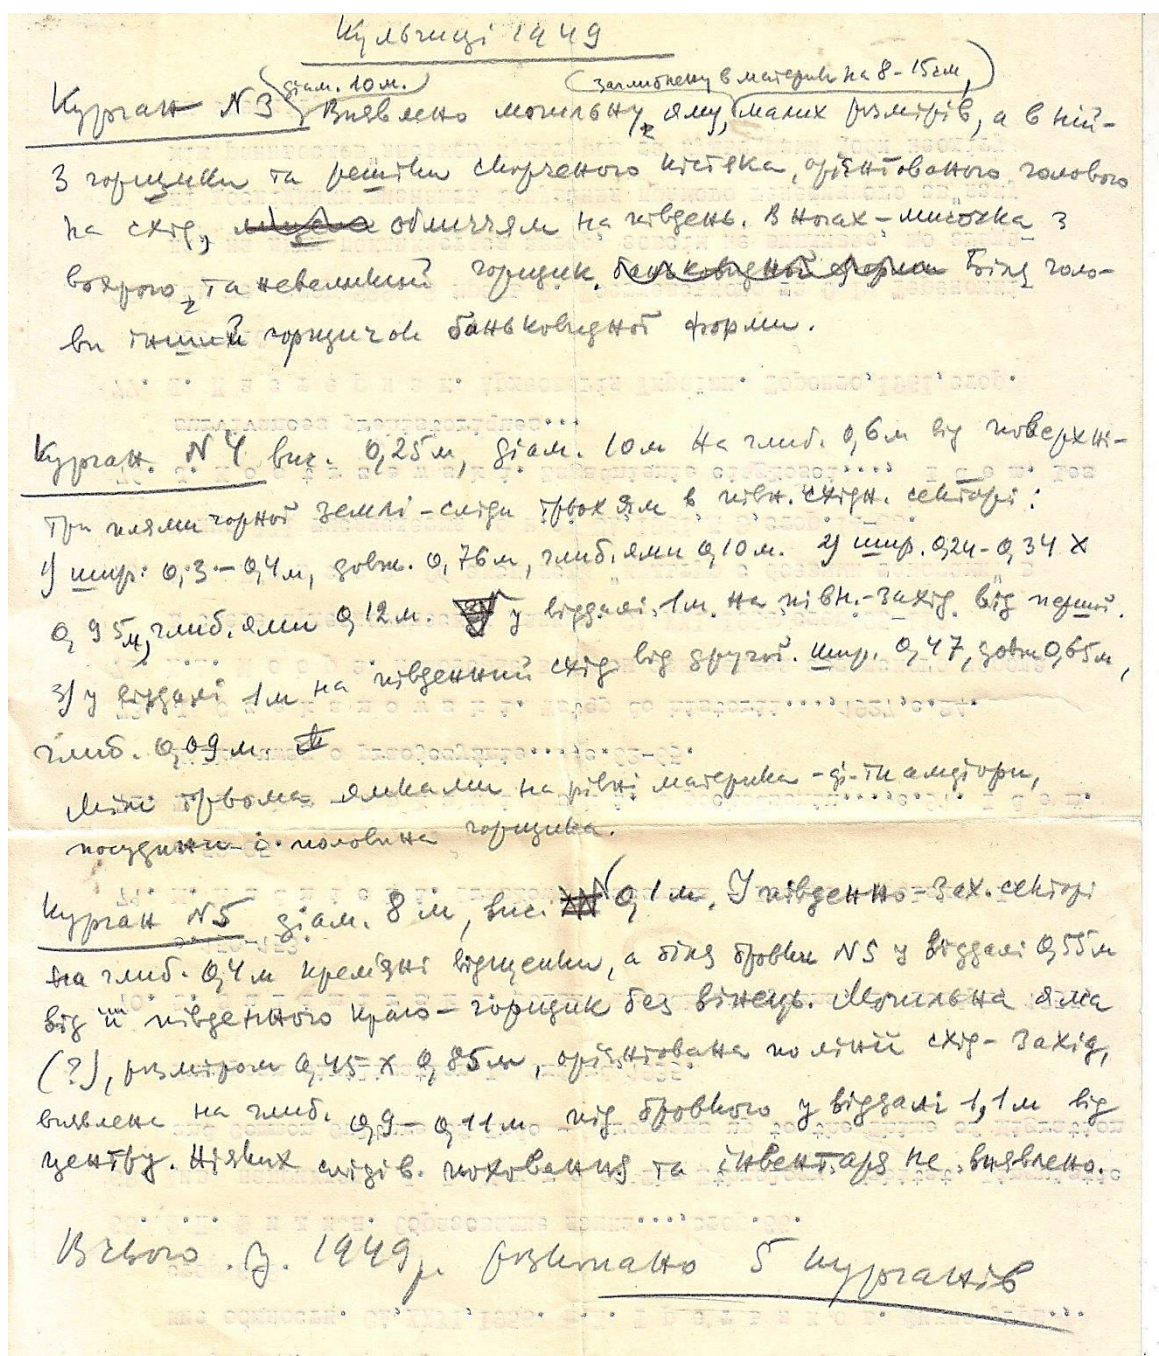 Кульчиці 1949
діам. 10 м. заглиблену в материк на 8-15 см,
Курган N 3 Виявлено могильну яму, малих розмірів, а в ній-
3 горщики та рештки скорченого кістяка, орієнтованого головою
на схід, обличчям на південь. В ногах - мисочка з
вохрою, та невеликий горщик. Біля голо-
ви інший горщичок баньковидної форми.
Курган. N 4 вис. 0,25 м, діам. 10 м На глиб. 0,6 м від поверхні-
три плями чорної землі - сліди трьох ям в півн. східн. секторі:
1) шир: 0,3 - 0,4 м, довж. 0,76 м, глиб. ями 0,10 м. 2) шир. 0,24-0,34 х
0,95 м, глиб. ями 0,12 м. у віддалі 1 м. на півн.-захід. від першої.
3) у віддалі 1 м на південний схід від другої. шир. 0,47, довж 0,65 м,
глиб. 0,09 м.
Між трьома ямками на рівні материка - амфори,
посудини і половина горщика.
Курган N 5 діам. 8 м, вис. 0,1 м. У південно-зах. секторі
на глиб. 0,4 м крем'яні відщепки, а біля бровки N 5 у віддалі 0,55 м
від її південного краю - горщик без вінець. Могильна яма
(?), розміром 0,45 х 0,85 м, орієнтована по лінії схід - захід,
виявлена на глиб. 0,9 - 0,11 м під бровкою у віддалі 1,1 м від
центру. Ніяких слідів. поховання та інвентаря не виявлено.
Всього .у. 1949 р. розкопано 5 курганів